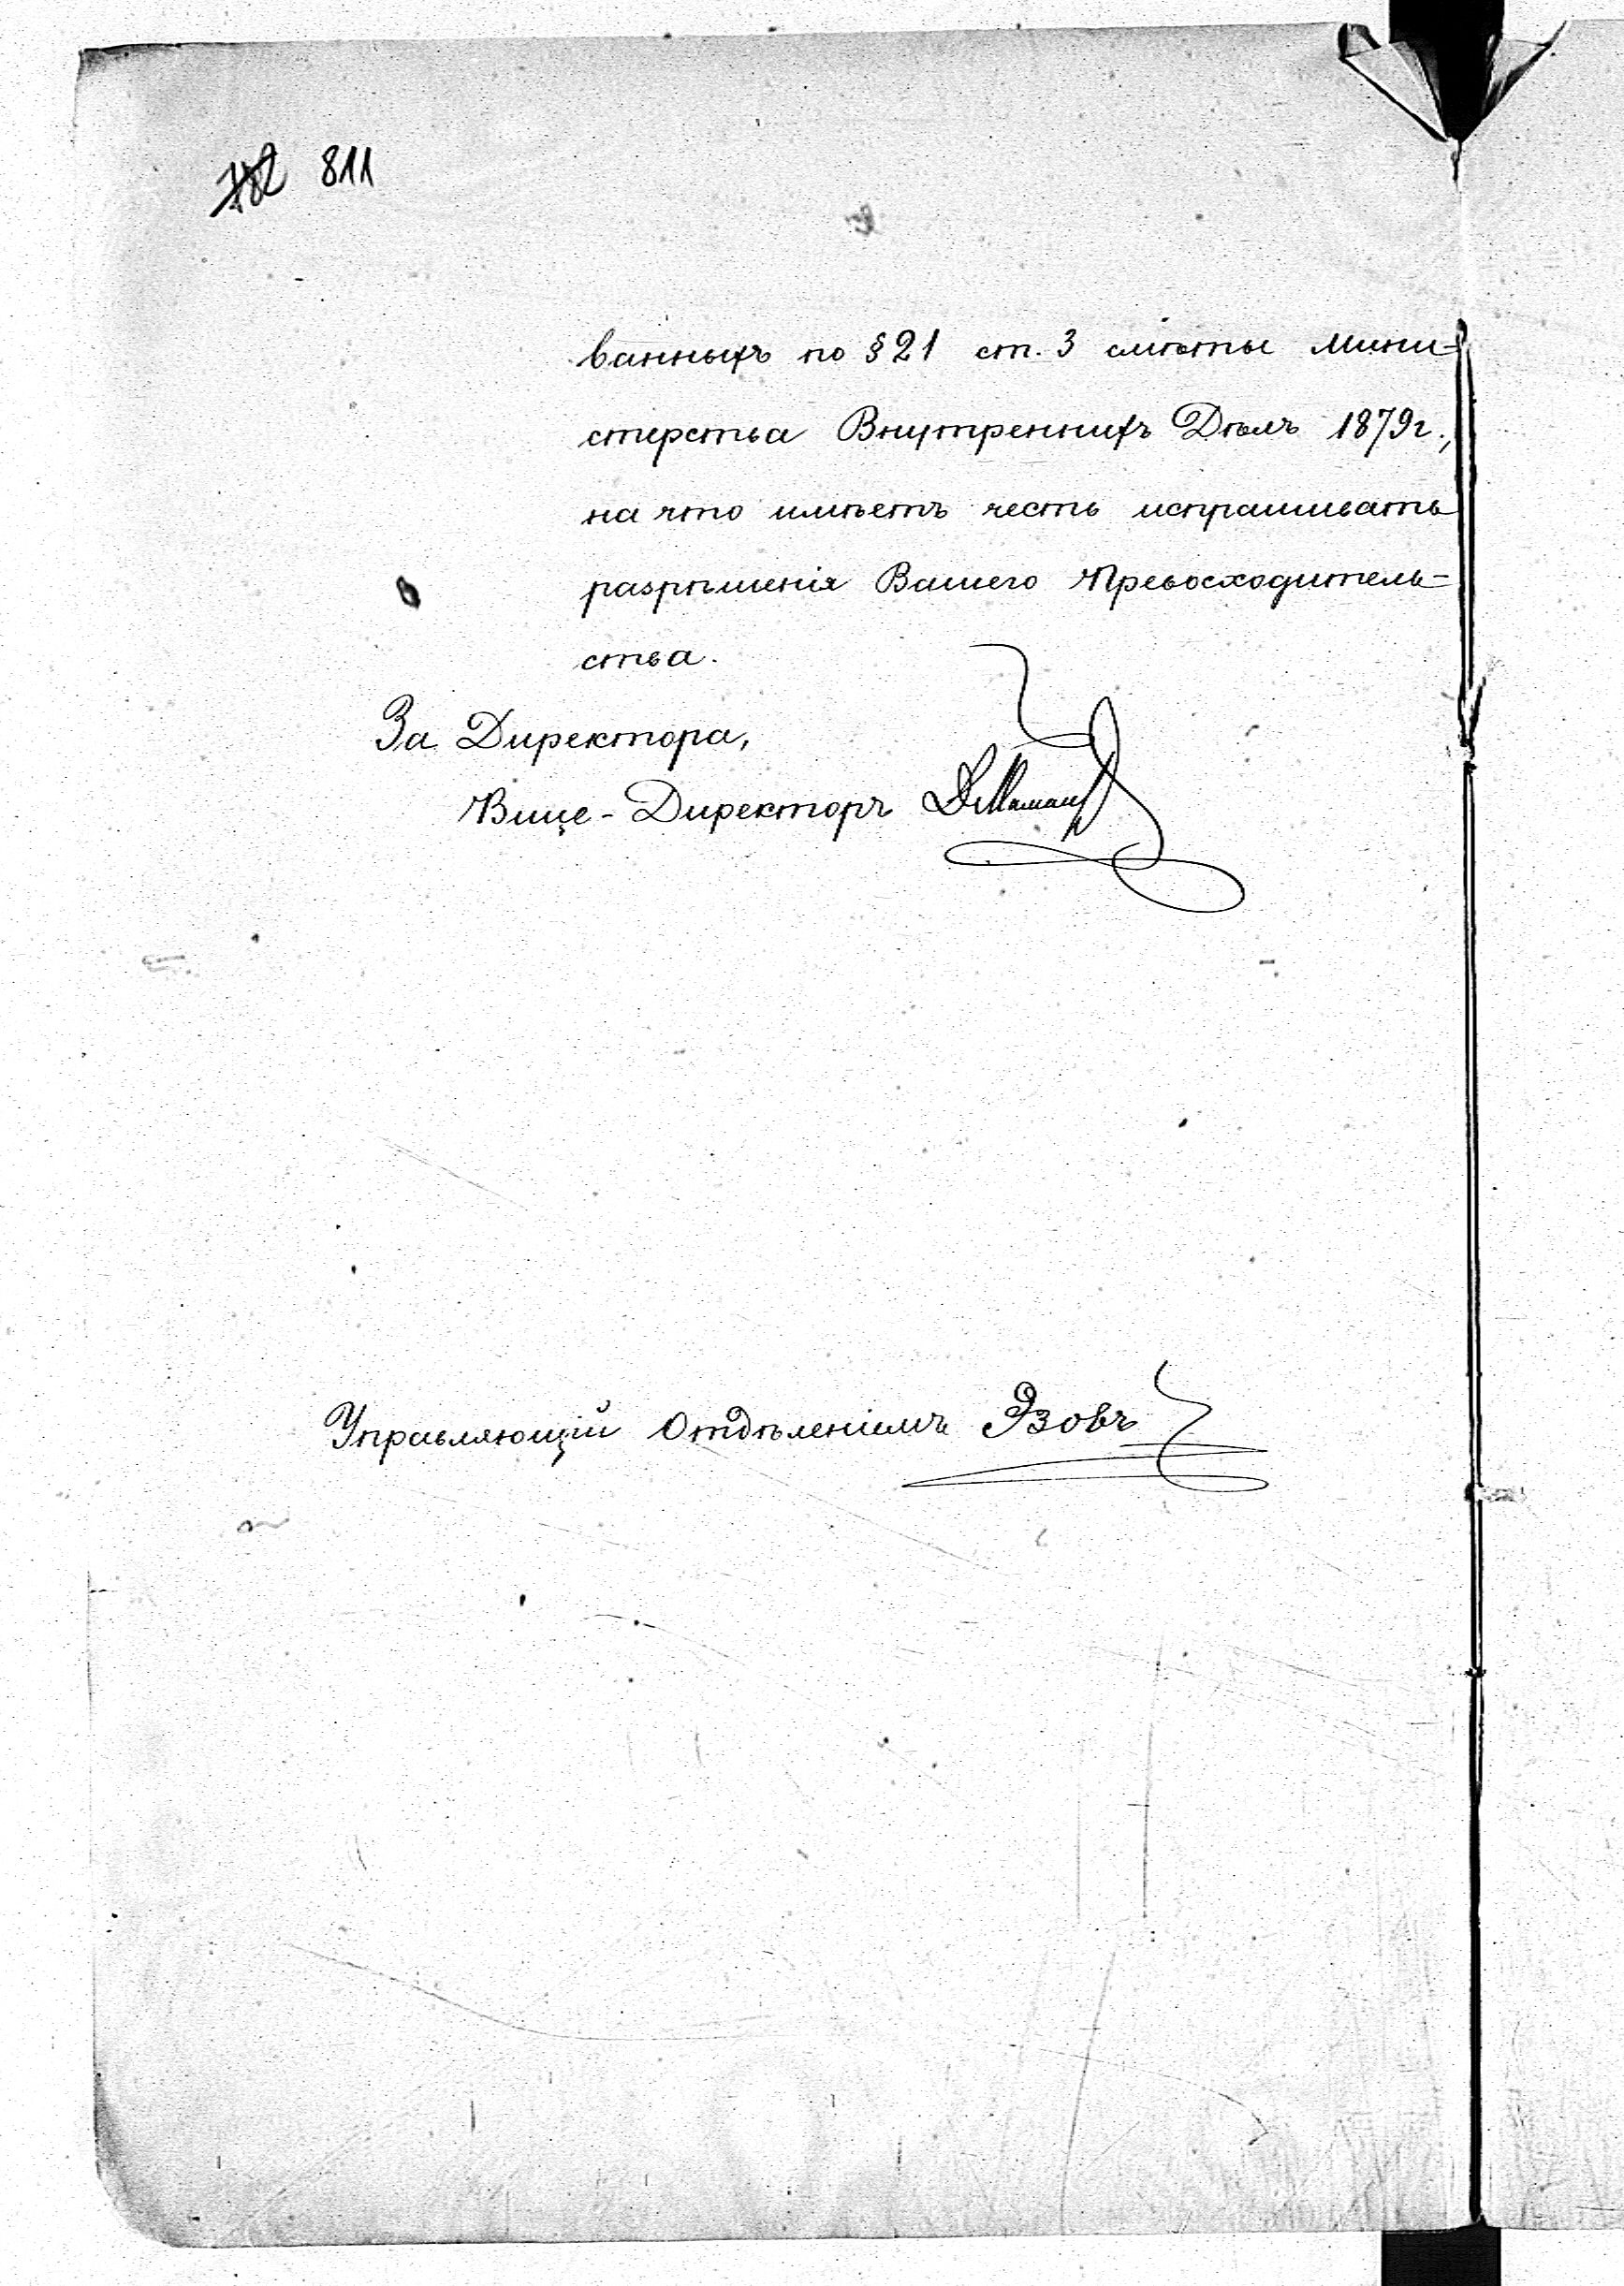 782 811
ванныхъ по § 21 ст. 3 смѣты Мини-
стерства Внутреннихъ Дѣлъ 1879 г.,
на что имѣетъ честь испрашивать
разрѣшенія Вашего Превосходитель-
ства.
За Директора,
Вице-Директоръ
Управляющій Отдѣленіемъ Эзовъ